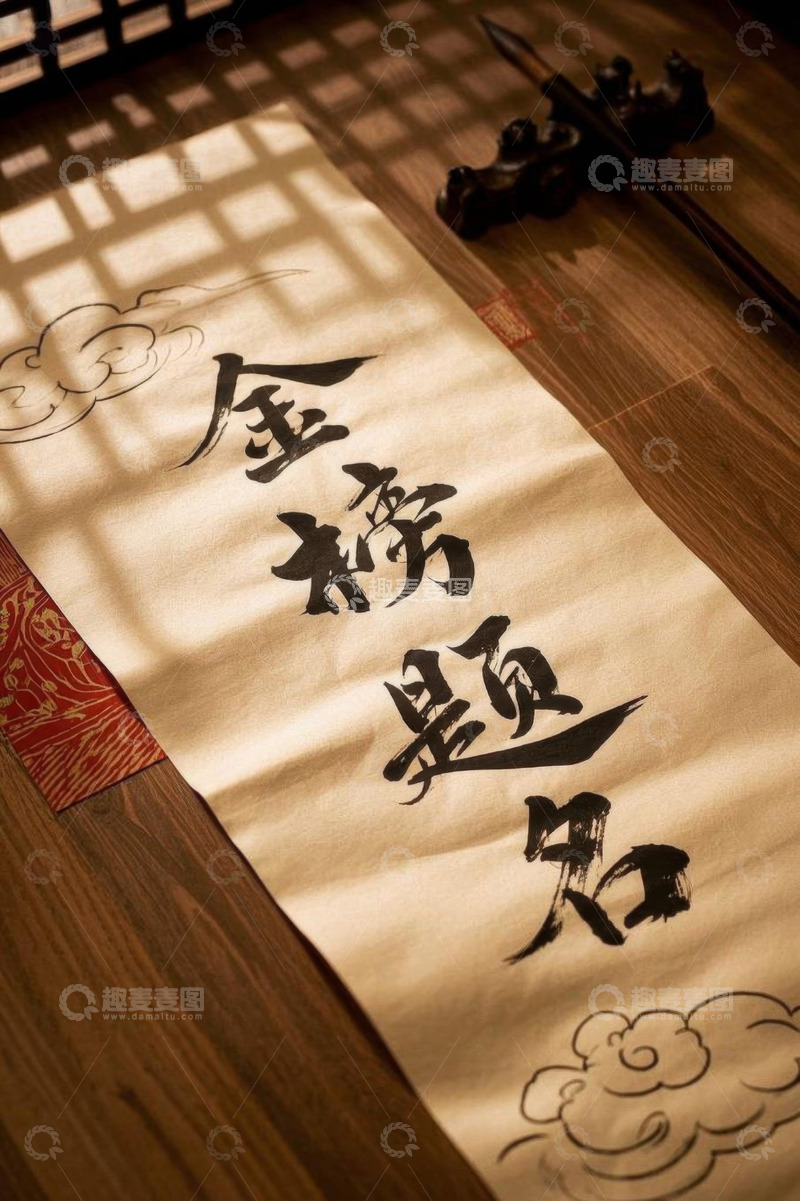 金榜题名
趣麦麦图
www.damaitu.com
趣麦麦图
www.damaitu.com
趣麦麦图
趣麦麦图
www.damaitu.com
趣麦麦图
www.damaitu.com